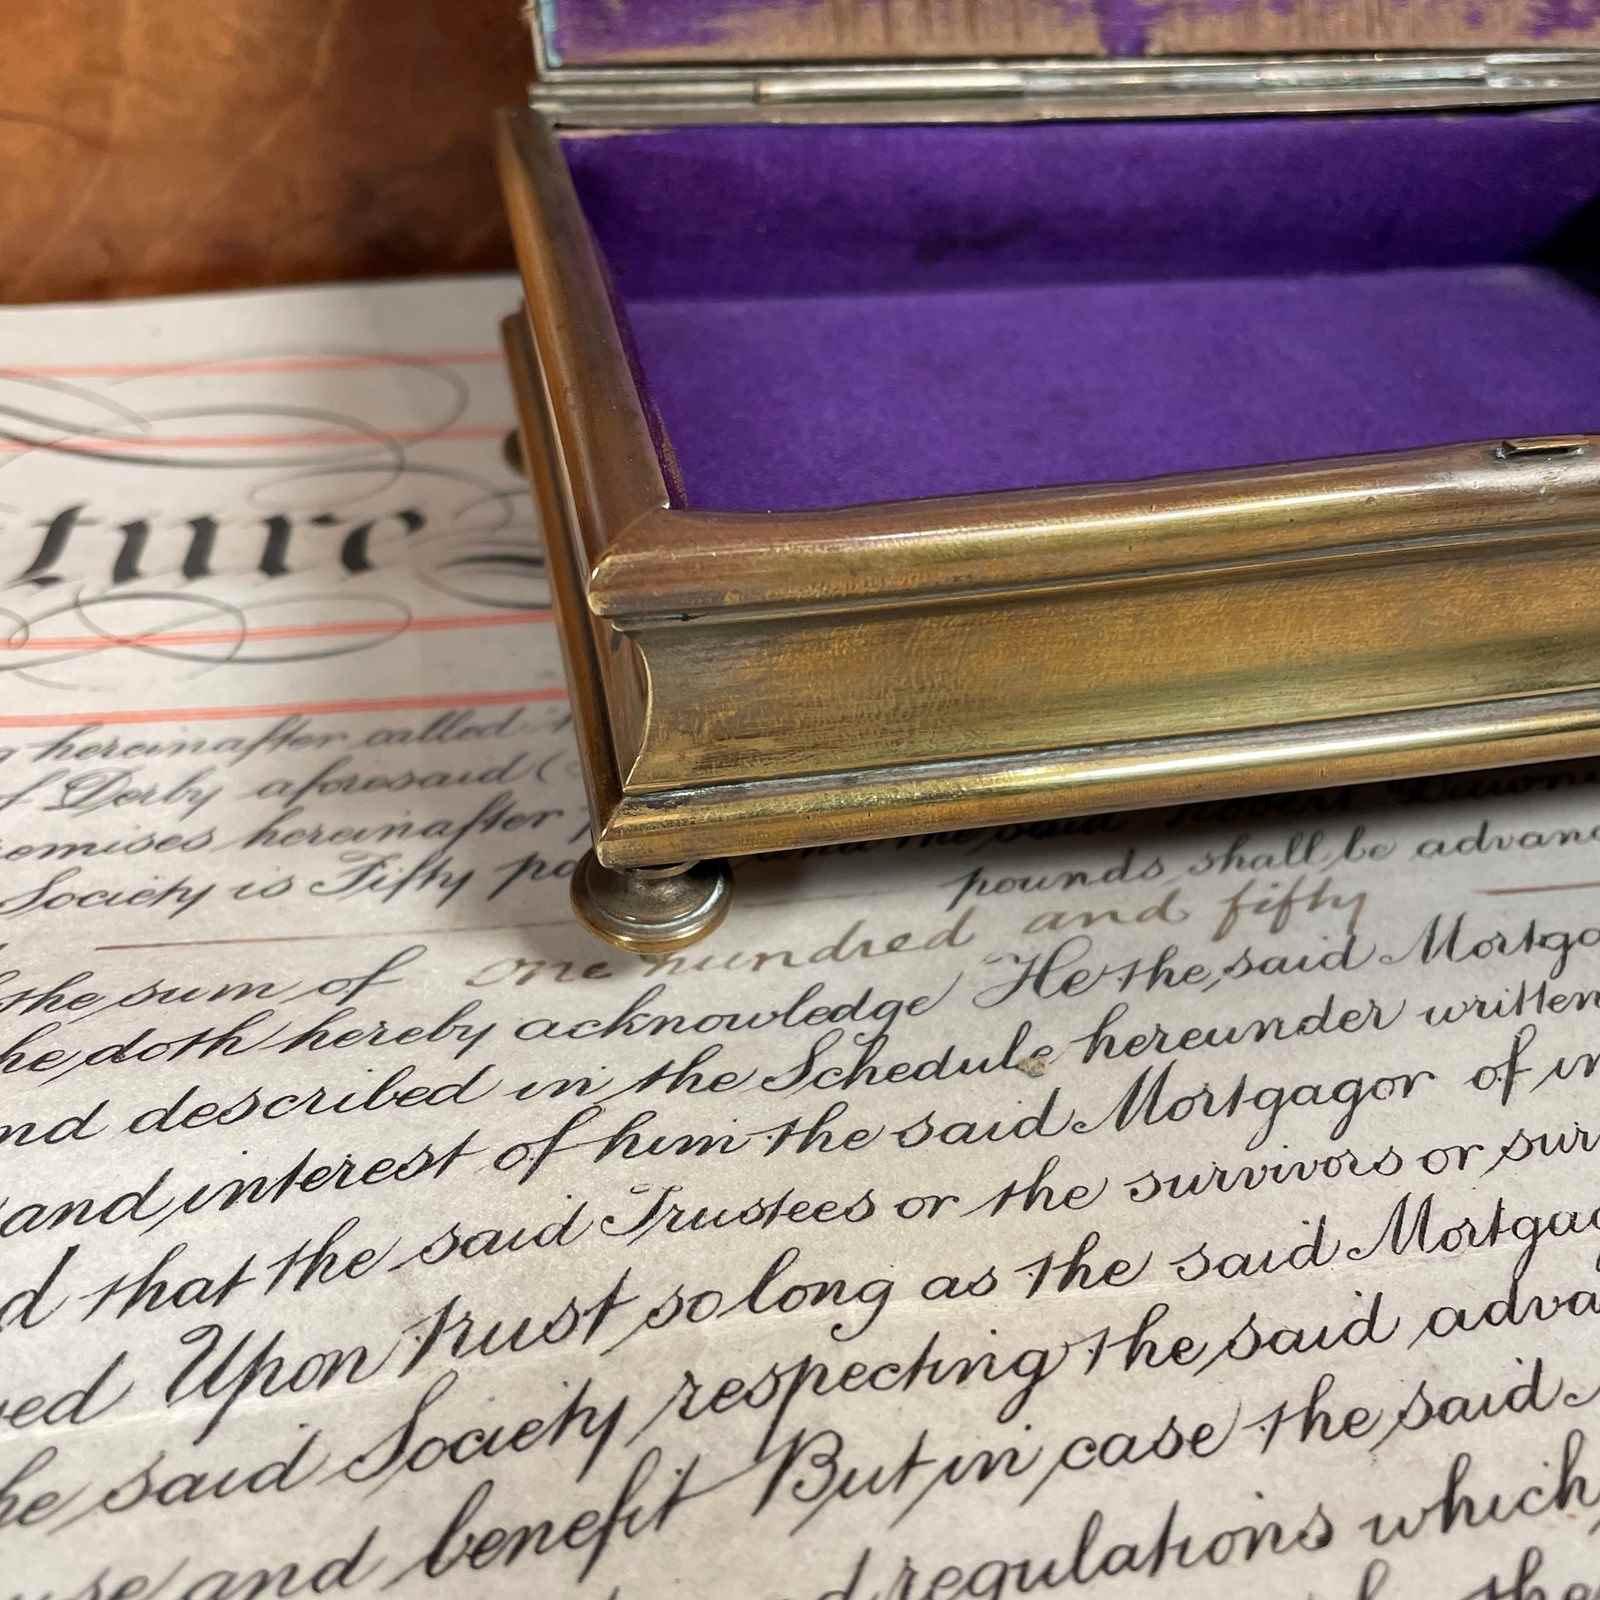 ture
hereinafter called
of Derby aforesaid (
emises hereinafter
Society is Fifty and the said Robert
pounds shall be advanc
the sum of one hundred and fifty
he doth hereby acknowledge He the said Mortga
nd described in the Schedule hereunder written
and interest of him the said Mortgagor of in
d that the said Trustees or the survivors or sur
ed Upon trust so long as the said Mortgag
he said Society respecting the said adva
use and benefit But in case the said
d regulations which
the